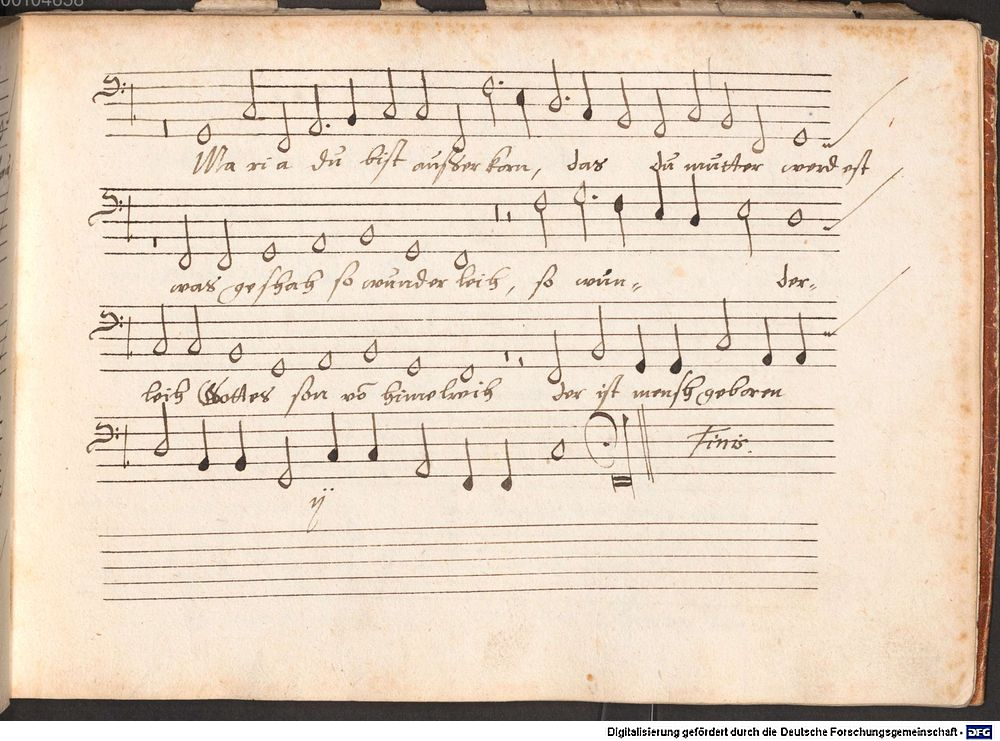 Maria du bist ausserkorn, das du mutter werdest
was geshah so wunderleih, so wun-
der-
leih Gottes son võ himelreih der ist mensh geboren
ij
Finis.
Digitalisierung gefördert durch die Deutsche Forschungsgemeinschaft - DFG